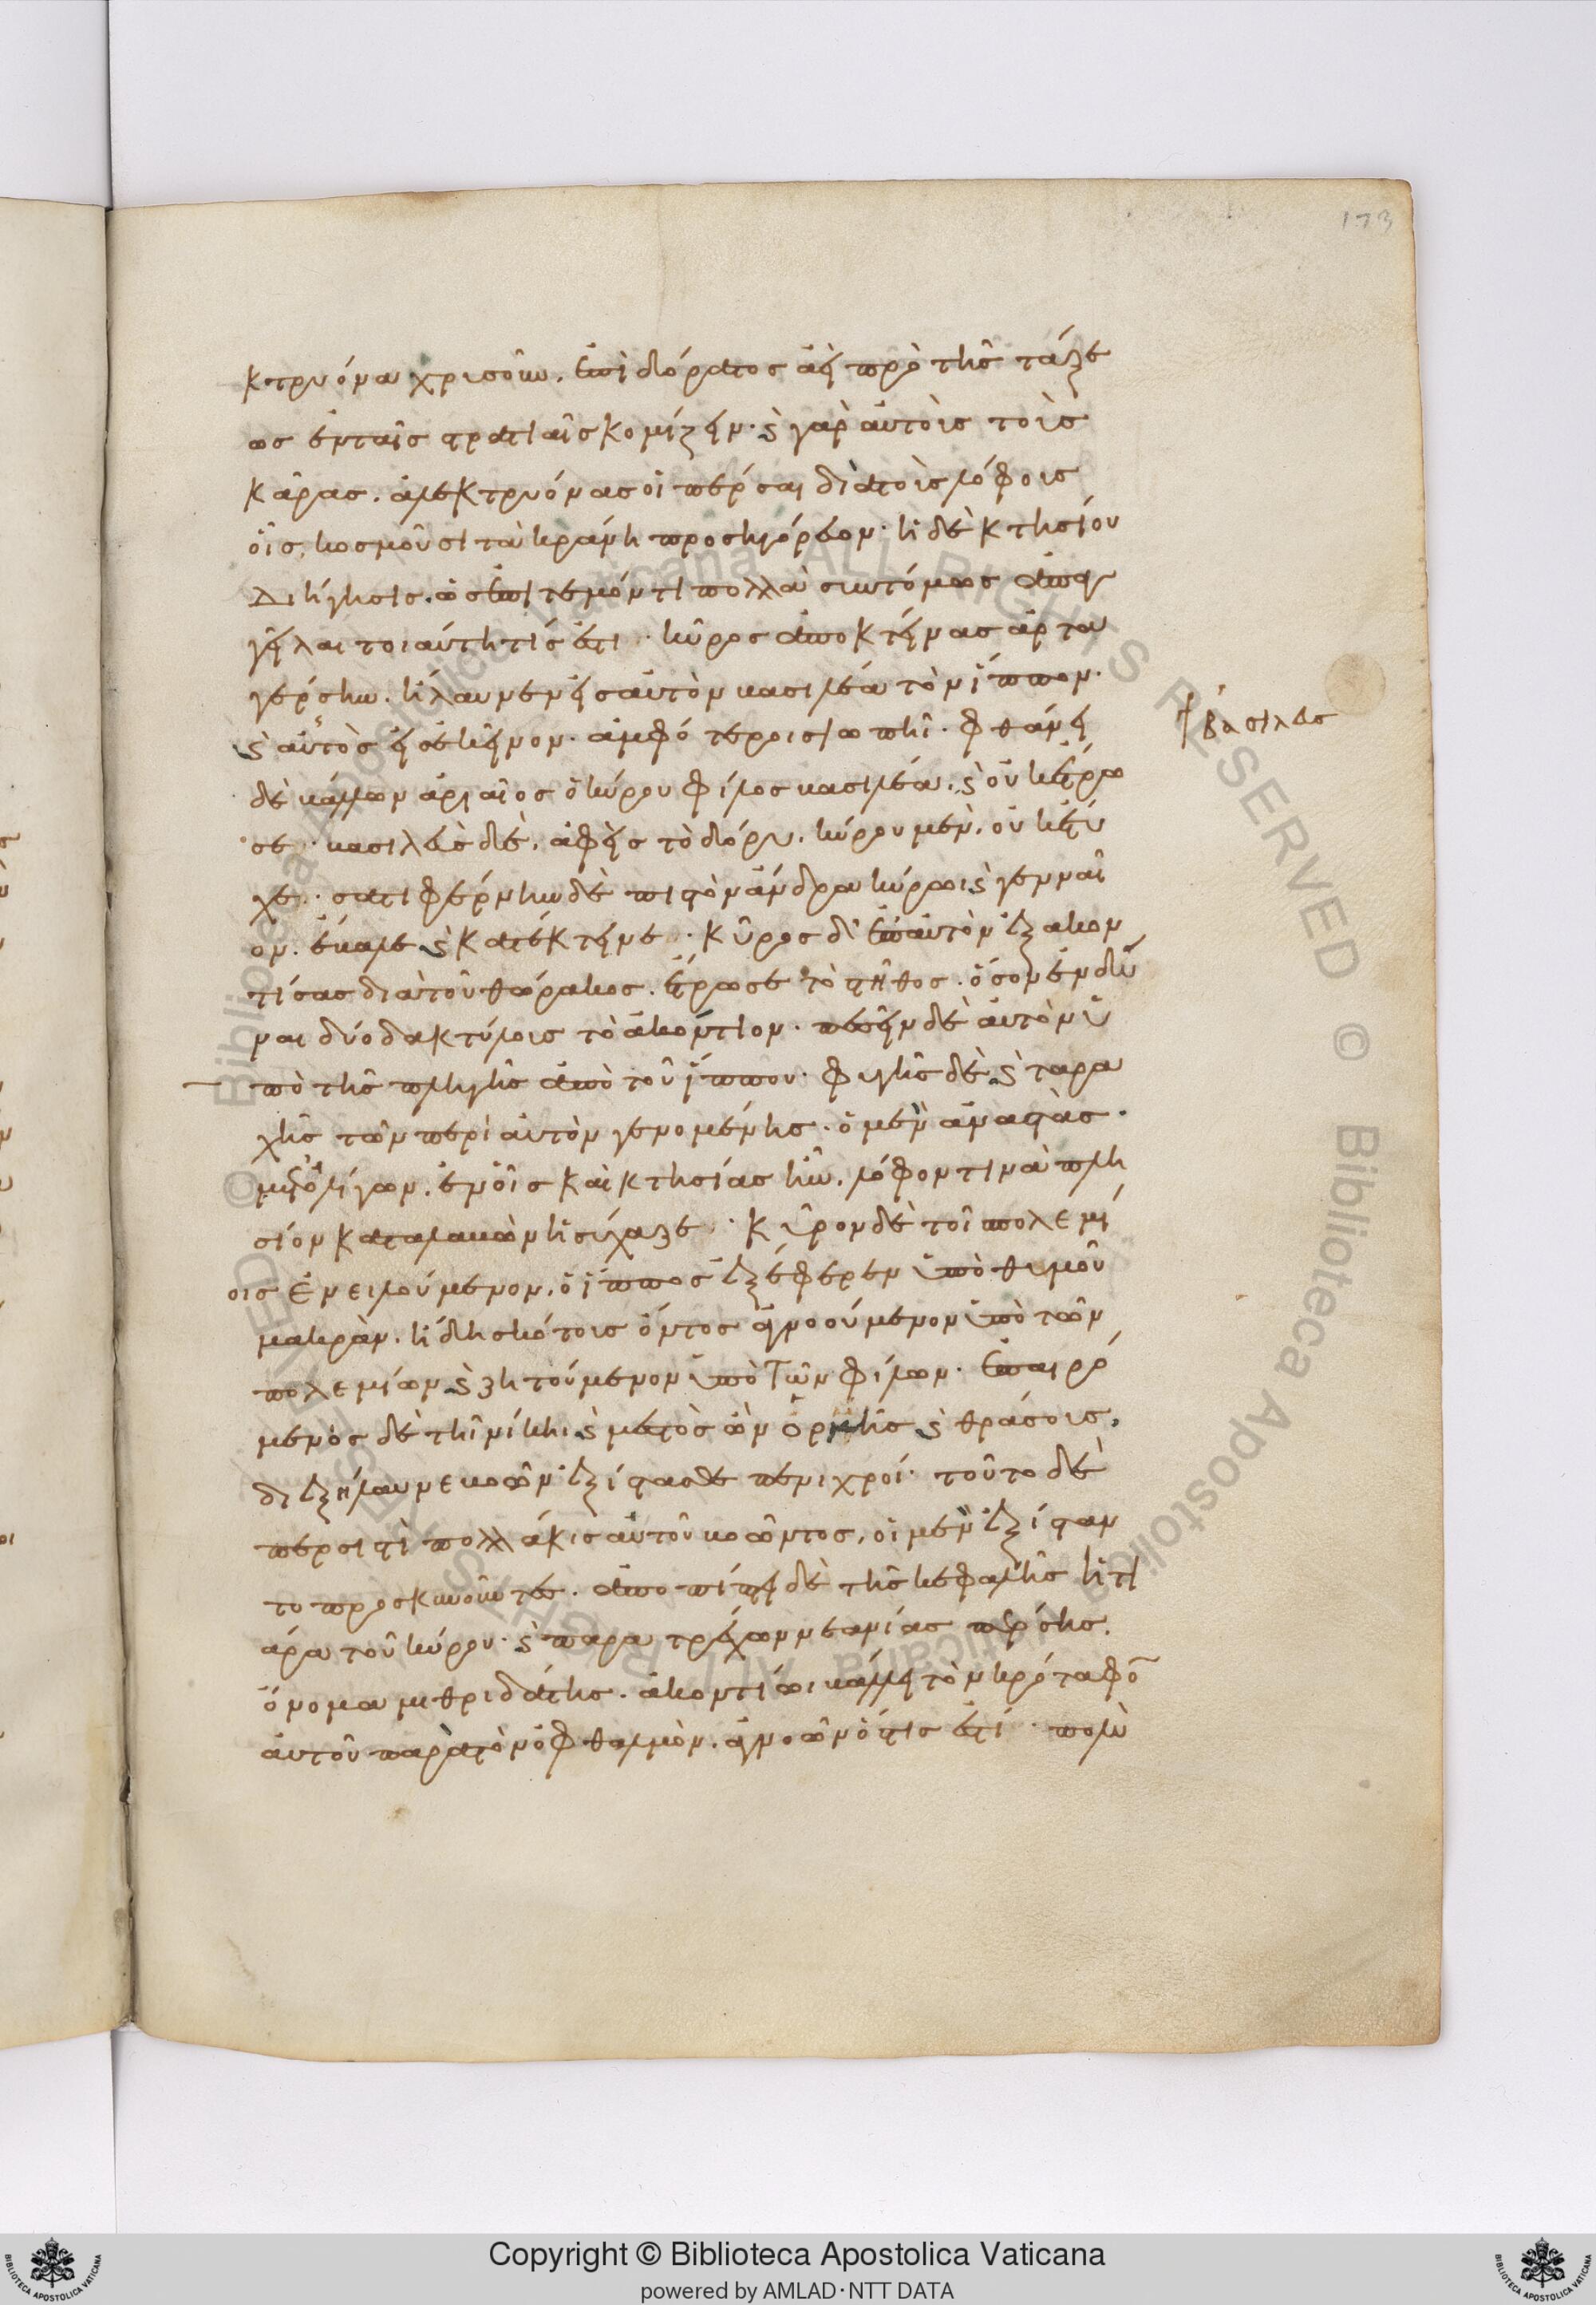 173
κτρυόνα χρυσοῦν. ἐπὶ δόρατος ἀεὶ πρὸ τῆς τάξε
ως ἐν ταῖς στρατιαῖς κομίζειν· καὶ γὰρ αὐτοὺς τοὺς
κᾶρας. ἀλεκτρυόνας οἱ πέρσαι διὰ τοὺς λόφους
οἷς κοσμοῦσι τὰ κράνη προσηγόρευον· ἡ δὲ κτησίου
Διήγησις. ὡς ἐπιτεμόντι πολλὰ συντόμως ἀπαγ
γεῖλαι τοιαύτη τίς ἐστι· κῦρος ἀποκτείνας ἀρτα
γέρσην. ἤλαυνεν εἰς αὐτὸν βασιλέα τὸν ἵππον·
καὶ αὐτὸς εἰς ἐκεῖνον· ἀμφότεροι σιωπῆ· φθάνει
δὲ βάλλων ἀριαῖος ὁ κύρου φίλος βασιλέα. καὶ οὐκ ἔτρω
σε· βασιλεὺς δὲ. ἀφεὶς τὸ δόρυ. κύρου μὲν. οὐκ ἔτυ
χε· σατιφέρνην δὲ πιστὸν ἄνδρα κύρωι καὶ γενναῖ
ον. ἔβαλε καὶ κατέκτεινε· Κῦρος δ' ἐπ' αὐτὸν ἐξακον
τίσας διὰ τοῦ θώρακος. ἔτρωσε τὸ στῆθος. ὅσον ἐνδῦ
ναι δύο δακτύλους τὸ ἀκόντιον· πεσεῖν δὲ αὐτὸν ὑ
πὸ τῆς πληγῆς ἀπὸ τοῦ ἵππου· φυγῆς δὲ καὶ ταρα
χῆς τῶν περὶ αὐτὸν γενομένης. ὁ μὲν ἀναστὰς·
μετ' ὀλίγων. ἐν οἷς καὶ κτησίας ἦν. λόφον τινὰ πλη
σίον καταλαβὼν ἡσύχαζε· Κῦρον δὲ τοῖ πολεμί
οις ἐνειλούμενον. ὁ ἵππος ἐξέφερεν ὑπὸ θυμοῦ
μακρὰν. ἤδη σκότους ὄντος ἀγνοούμενον ὑπὸ τῶν
πολεμίων καὶ ζητούμενον ὑπὸ τῶν φίλων· ἐπαιρό
μενος δὲ τῆ νίκηι καὶ μεστὸς ὢν ὁρμῆς καὶ θράσους.
διεξήλαυνε βοῶν ἐξίστασθε πενιχροί· τοῦτο δὲ
περσιστὶ πολλάκις αὐτοῦ βοῶντος. οἱ μὲν ἐξίσταν
το προσκυνοῦντες. ἀποπίπτει δὲ τῆς κεφαλῆς ἡ τι
άρα τοῦ κύρου· καὶ παρατρέχων νεανίας πέρσης.
ὄνομα μιθριδάτης. ἀκοντίωι βάλλει τὸν κρόταφον
αὐτοῦ παρὰ τὸν ὀφθαλμὸν. ἀγνοῶν ὅστις ἐστί· πολὺ
βασιλεὺς
Copyright © Biblioteca Apostolica Vaticana
powered by AMLAD·NTT DATA